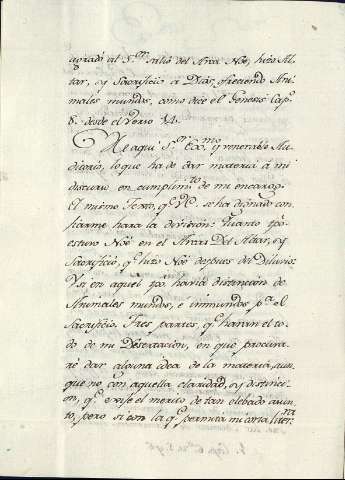 agradó al S.or salió del Arca Noè, hizo Al-
tar, y Sacrificio à Dios, ofreciendo Ani-
males mundos, como dice el Genesis Cap.
8. desde el Verso 14.
He aqui S.or Ex.mo y venerable Au-
ditorio, lo que ha de dar materia à mi
discurso en cumplim.to de mi encargo.
El mismo Texto, q.e VE. se ha dignado con-
fiarme hara la division: Quanto tpo
estuvo Noè en el Arca: Del Altar, y
Sacrificio, q.e hizo Noè despues del Diluvio:
Y si en aquel tpo. havia distincion de
Animales mundos, è inmundos p.a el
Sacrificio. Tres partes, q.e haran el to-
do de mi Desertacion, en que procura-
rè dar alguna idea de la materia, aun-
que no con aquella claridad, y distinci-
on, q.e exije el merito de tan elebado asun-
to, pero si con la q.e permita mi corta liter.ra